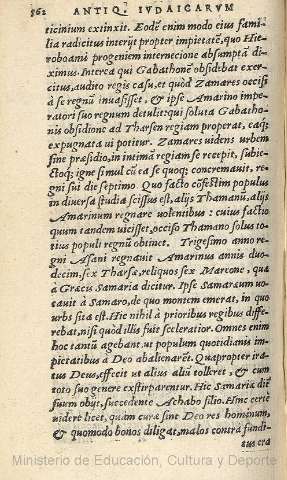 562 ANTIQ. IVDAICARVM
ticinium extinxit. Eodē enim modo eius fami-
lia radicitus interijt propter impietatē, quo Hie-
roboami progeniem internecione absumptā di-
ximus. Interea qui Gabathonē obsidebat exer-
citus, audito regis casu, et quòd Zamares occisi
à se regnū inuasisset, & ipse Amarino impe-
ratori suo regnum detulit: qui soluta Gabatho-
nis obsidione ad Tharsen regiam properat, eaq;
expugnata ui potitur. Zamares uidens urbem
sine præsidio, in intimā regiam se recepit, subie-
ctoq; igne simul cū ea se quoq; concremauit, re-
gni sui die septimo. Quo facto cōfestim populus
in diuersa studia scissus est, alijs Thamanū, alijs
Amarinum regnare uolentibus : cuius factio
quum tandem uicisset, occiso Thamano solus to-
tius populi regnū obtinet. Trigesimo anno re-
gni Asani regnauit Amarinus annis duo-
decim, sex Tharsæ, reliquos sex Mareone, quæ
à Græcis Samaria dicitur. Ipse Samaræum uo-
cauit à Samaro, de quo montem emerat, in quo
urbs sita est. Hic nihil à prioribus regibus diffe-
rebat, nisi quòd illis fuit sceleratior. Omnes enim
hoc tantū agebant, ut populum quotidianis im-
pietatibus à Deo abalienarēt. Quapropter ira-
tus Deus, effecit ut alius aliū tolleret, & cum
toto suo genere exstirparentur. Hic Samariæ diē
suum obijt, succedente Achabo filio. Hinc certè
uidere licet, quam curæ sint Deo res hominum,
& quomodo bonos diligat, malos contrà fundi-
tus era
Ministerio de Educación, Cultura y Deporte